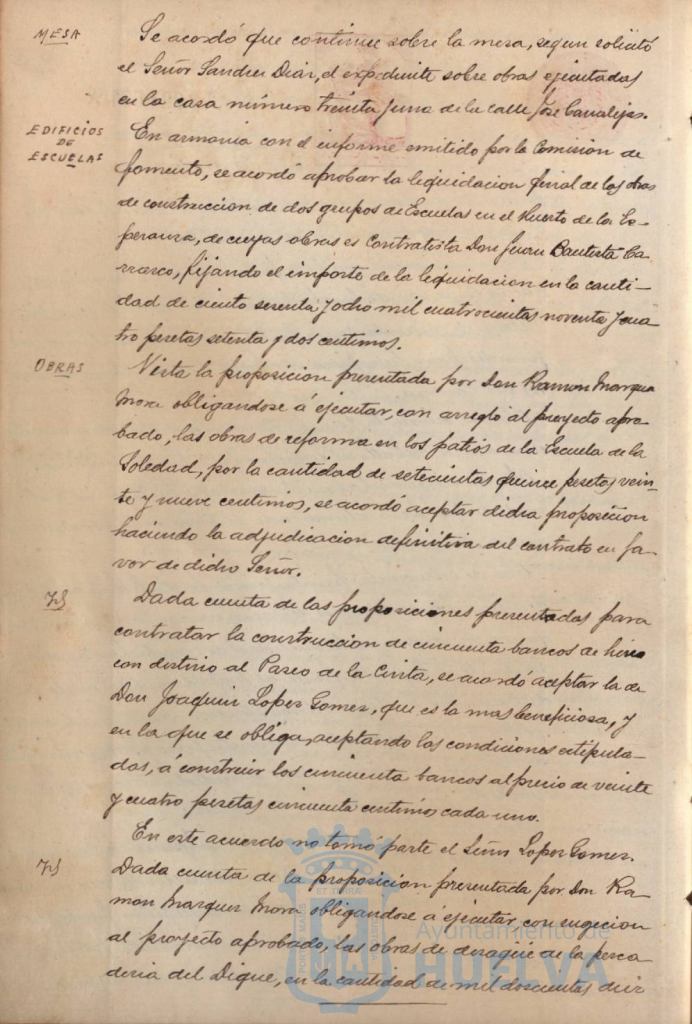 MESA
Se acordó que continue sobre la mesa, segun solicitó
el Señor Sanchez Diaz, el expediente sobre obras ejecutadas
en la casa número treinta y una de la calle José Canalejas.
EDIFICIOS
DE
ESCUELAS
En armonia con el informe emitido por la Comisión de
fomento, se acordó aprobar la liquidacion final de las obras
de construccion de dos grupos de Escuelas en el Huerto de la Es-
peranza, de cuyas obras es Contratista Don Juan Bautista Ca-
rrasco, fijando el importe de la liquidacion en la canti-
dad de ciento sesenta y ocho mil cuatrocientas noventa y cua-
tro pesetas setenta y dos centimos.
OBRAS
Vista la proposicion presentada por Don Ramon Marquez
Mora obligandose á ejecutar, con arreglo al proyecto apro-
bado, las obras de reforma en los patios de la Escuela de la
Soledad, por la cantidad de setecientas quince pesetas vein-
te y nueve centimos, se acordó aceptar dicha proposicion
haciendo la adjudicacion definitiva del contrato en fa-
vor de dicho Señor.
Dada cuenta de las proposiciones presentadas para
contratar la construccion de cincuenta bancos de hierro
con destino al Paseo de la Cinta, se acordó aceptar la de
Don Joaquin Lopez Gomez, que es la mas beneficiosa, y
en la que se obliga, aceptando las condiciones estipula-
das, á construir los cincuenta bancos al precio de veinte
y cuatro pesetas cincuenta centimos cada uno.
En este acuerdo no tomó parte el Señor Lopez Gomez.
Dada cuenta de la proposicion presentada por Don Ra-
mon Marquez Mora obligandose á ejecutar con sugecion
al proyecto aprobado, las obras de desagüe de la pesca-
deria del Dique, en la cantidad de mil doscientas diez
Ayuntamiento de
HUELVA